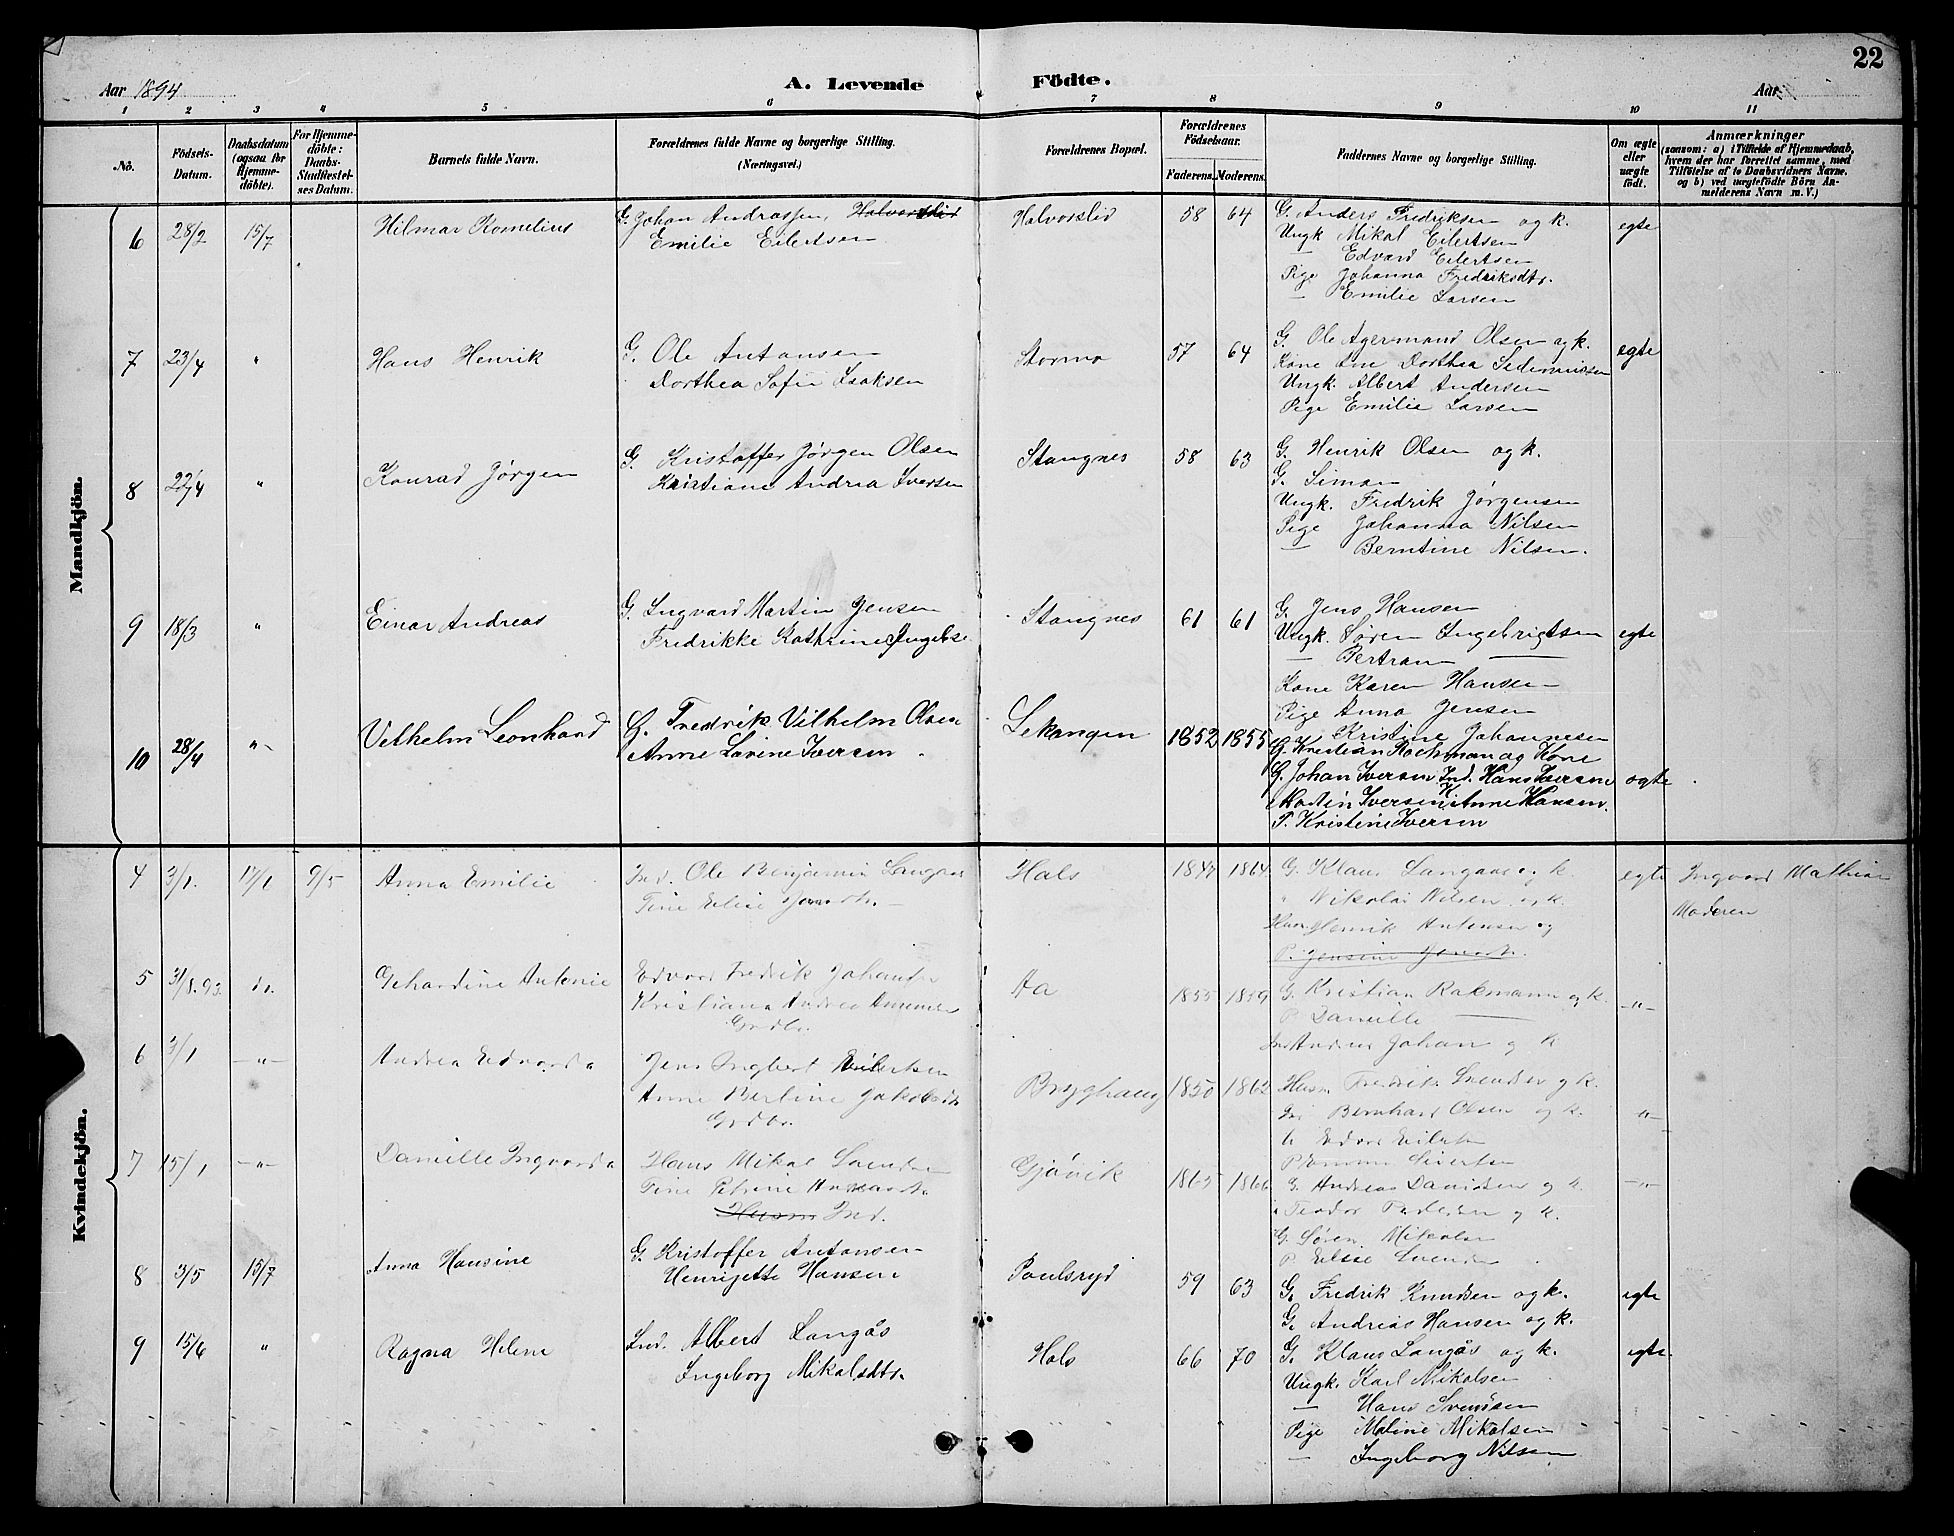 22
Aar 1894
A. Levende Födte.
Aar
1 2 3 4 5 6 7 8 9 10 11
No.
Födsels-Datum.
Daabsdatum (ogsaa for Hjemme-döbte).
For Hjemme-döbte: Daabs-Stadfæstel-ses Datum.
Barnets fulde Navn.
Forældrenes fulde Navne og borgerlige Stilling. (Næringsvei.)
Forældrenes Bopæl.
Forældrenes Födselsaar.
Faderens. Moderens.
Faddernes Navne og borgerlige Stilling.
Om ægte eller uægte födt.
Anmærkninger
(saasom: a) i Tilfælde af Hjemmedaab, hvem der har forrettet samme, med Tilföielse af to Daabsvidners Navne. og b) ved uægtefödte Börn An-melderens Navn m. V.)
Mandkjön.
6 28/2 15/7 Hilmar Kornelius G. Johan Andrassen, Halvorslid Halvorslid 58 64 G. Anders Fredriksen og k. egte
Emilie Eilertsen Ungk Mikal Eilertsen
— Edvard Eilertsen
Pige Johanna Fredriksdtr.
— Emilie Larsen
7 23/4 " Hans Henrik G. Ole Antonsen Stormo 57 64 G. Ole Agermand Olsen og k. egte
Dorthea Sofie Isaksen Kone Ane Dorthea
Ungk. Albert Andersen
Pige Emilie Larsen
8 22/4 " Konrad Jørgen G. Kristoffer Jørgen Olsen Stangnes 58 63 G. Henrik Olsen og k.
Kristiane Andrea Iversen G. Simon
Ungk. Fredrik Jørgensen
Pige Johanna Nilsen
— Berntine Nilsen.
9 18/3 " Einar Andreas G. Ingvard Martin Jensen Stangnes 61 61 G. Jens Hansen
Fredrikke Kathrine Ungk. Søren Ingebrigtsen egte
— Bertran —
Kone Karen Hansen
Pige Anna Jensen
Kristine Johannesen
10 28/4 -"- Vilhelm Leonhard G. Fredrik Vilhelm Olsen Lekangen 1852 1855 G. Kristian Rochman og Kone
Anne Lovine Iversen. G. Johan Iversen Ind. Hans Iversen egte
Martin Iversen K. Anne Hansen.
P. Kristine Iversen
Kvindekjön.
4 3/1. 17/1 9/5 Anna Emilie Ind. Ole Benjamin Langaas Hals 1864 G. Klaus Langaas og k. egte Ingvard Mathias
Tine Elise " Nikolai Nilsen og k. Moderen
Henrik Antonsen og
P. Jensine
5 31/8.93. do. Gehardine Antonie Edvard Fredrik Aa 1855 1859 G. Kristian Rakmann og k. -"-
Kristiana Andrea P. Danielle —
Grdbr. Andreas Johan og k
6 3/1 -"- Andrea Edvarda Jens Ingbert Eilertsen Brygghaug 1850 1862 Husm Fredrik Svendsen og k.
Anne Berline Bernhard Olsen og k. -"-
Grdbr.
7 15/1 -"- Danielle Ingvarda Hans Mikal Gjøvik 1865 1866 G. Andreas Danielsen og k. -"-
Tine Petrine og k.
Husm Ind. G. Søren Mikalsen
P. Elise
8 3/5 15/7 Anna Hansine G. Kristoffer Antonsen Poulsryd 59 63 G. Fredrik Knudsen og k. egte
Henrijette Hansen G. Andreas Hansen og k.
9 15/6 " Ragna Helene Ind. Albert Langås Hals 66 70 G. Klaus Langås og k. egte
Ingeborg Mikalsdtr. Ungk. Karl Mikalsen
— Hans Svendsen
Pige Maline Mikalsen
— Ingeborg Nilsen